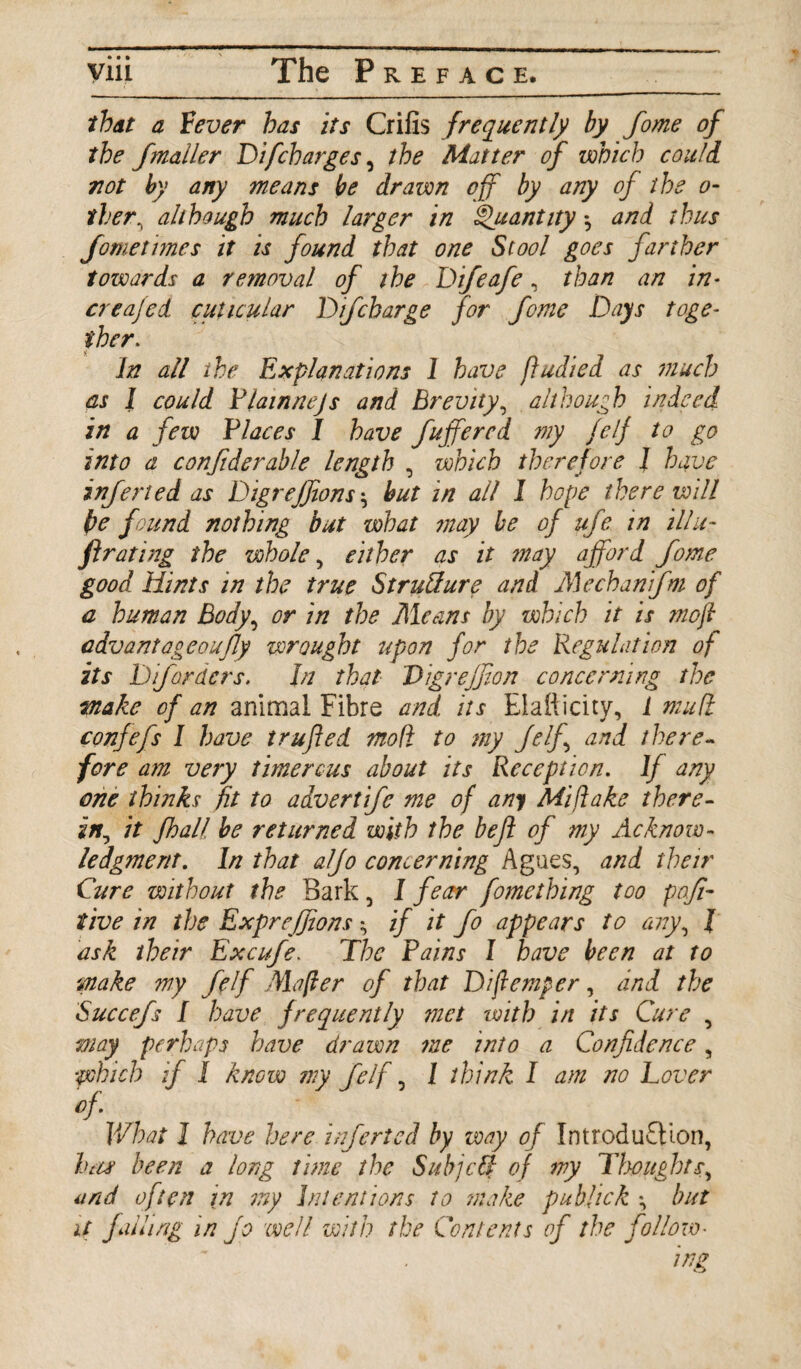 viii The PREFACE.
that a Fever has its Crisis frequently by ſome of
the ſmaller Diſcharges, the Matter of which could
not by any means be drawn off by any of the o-
ther, although much larger in Quantity; and thus
ſometimes it is found that one Stool goes farther
towards a removal of the Diſeaſe, than an in-
creaſed cuticular Diſcharge for ſome Days toge-
ther.
In all the Explanations I have ſtudied as much
as I could Plainneſs and Brevity, although indeed
in a few Places I have ſuffered my ſelf to go
into a conſiderable length, which therefore I have
inſerted as Digreſſions; but in all I hope there will
be found nothing but what may be of uſe in illu-
ſtrating the whole, either as it may afford ſome
good Hints in the true Structure and Mechaniſm of
a human Body, or in the Means by which it is moſt
advantageouſly wrought upon for the Regulation of
its Diſorders. In that Digreſſion concerning the
make of an animal Fibre and its Elaſticity, I muſt
confeſs I have truſted moſt to my ſelf, and there-
fore am very timerous about its Reception. If any
one thinks fit to advertiſe me of any Miſtake there-
in, it ſhall be returned with the beſt of my Acknow-
ledgment. In that alſo concerning Agues, and their
Cure without the Bark, I fear ſomething too poſi-
tive in the Expreſſions; if it ſo appears to any, I
ask their Excuſe. The Pains I have been at to
make my ſelf Maſter of that Diſtemper, and the
Succeſs I have frequently met with in its Cure,
may perhaps have drawn me into a Confidence,
which if I know my ſelf, I think I am no Lover
of.
What I have here inſerted by way of Introduction,
has been a long time the Subject of my Thoughts,
and often in my Intentions to make publick; but
it falling in ſo well with the Contents of the follow-
ing